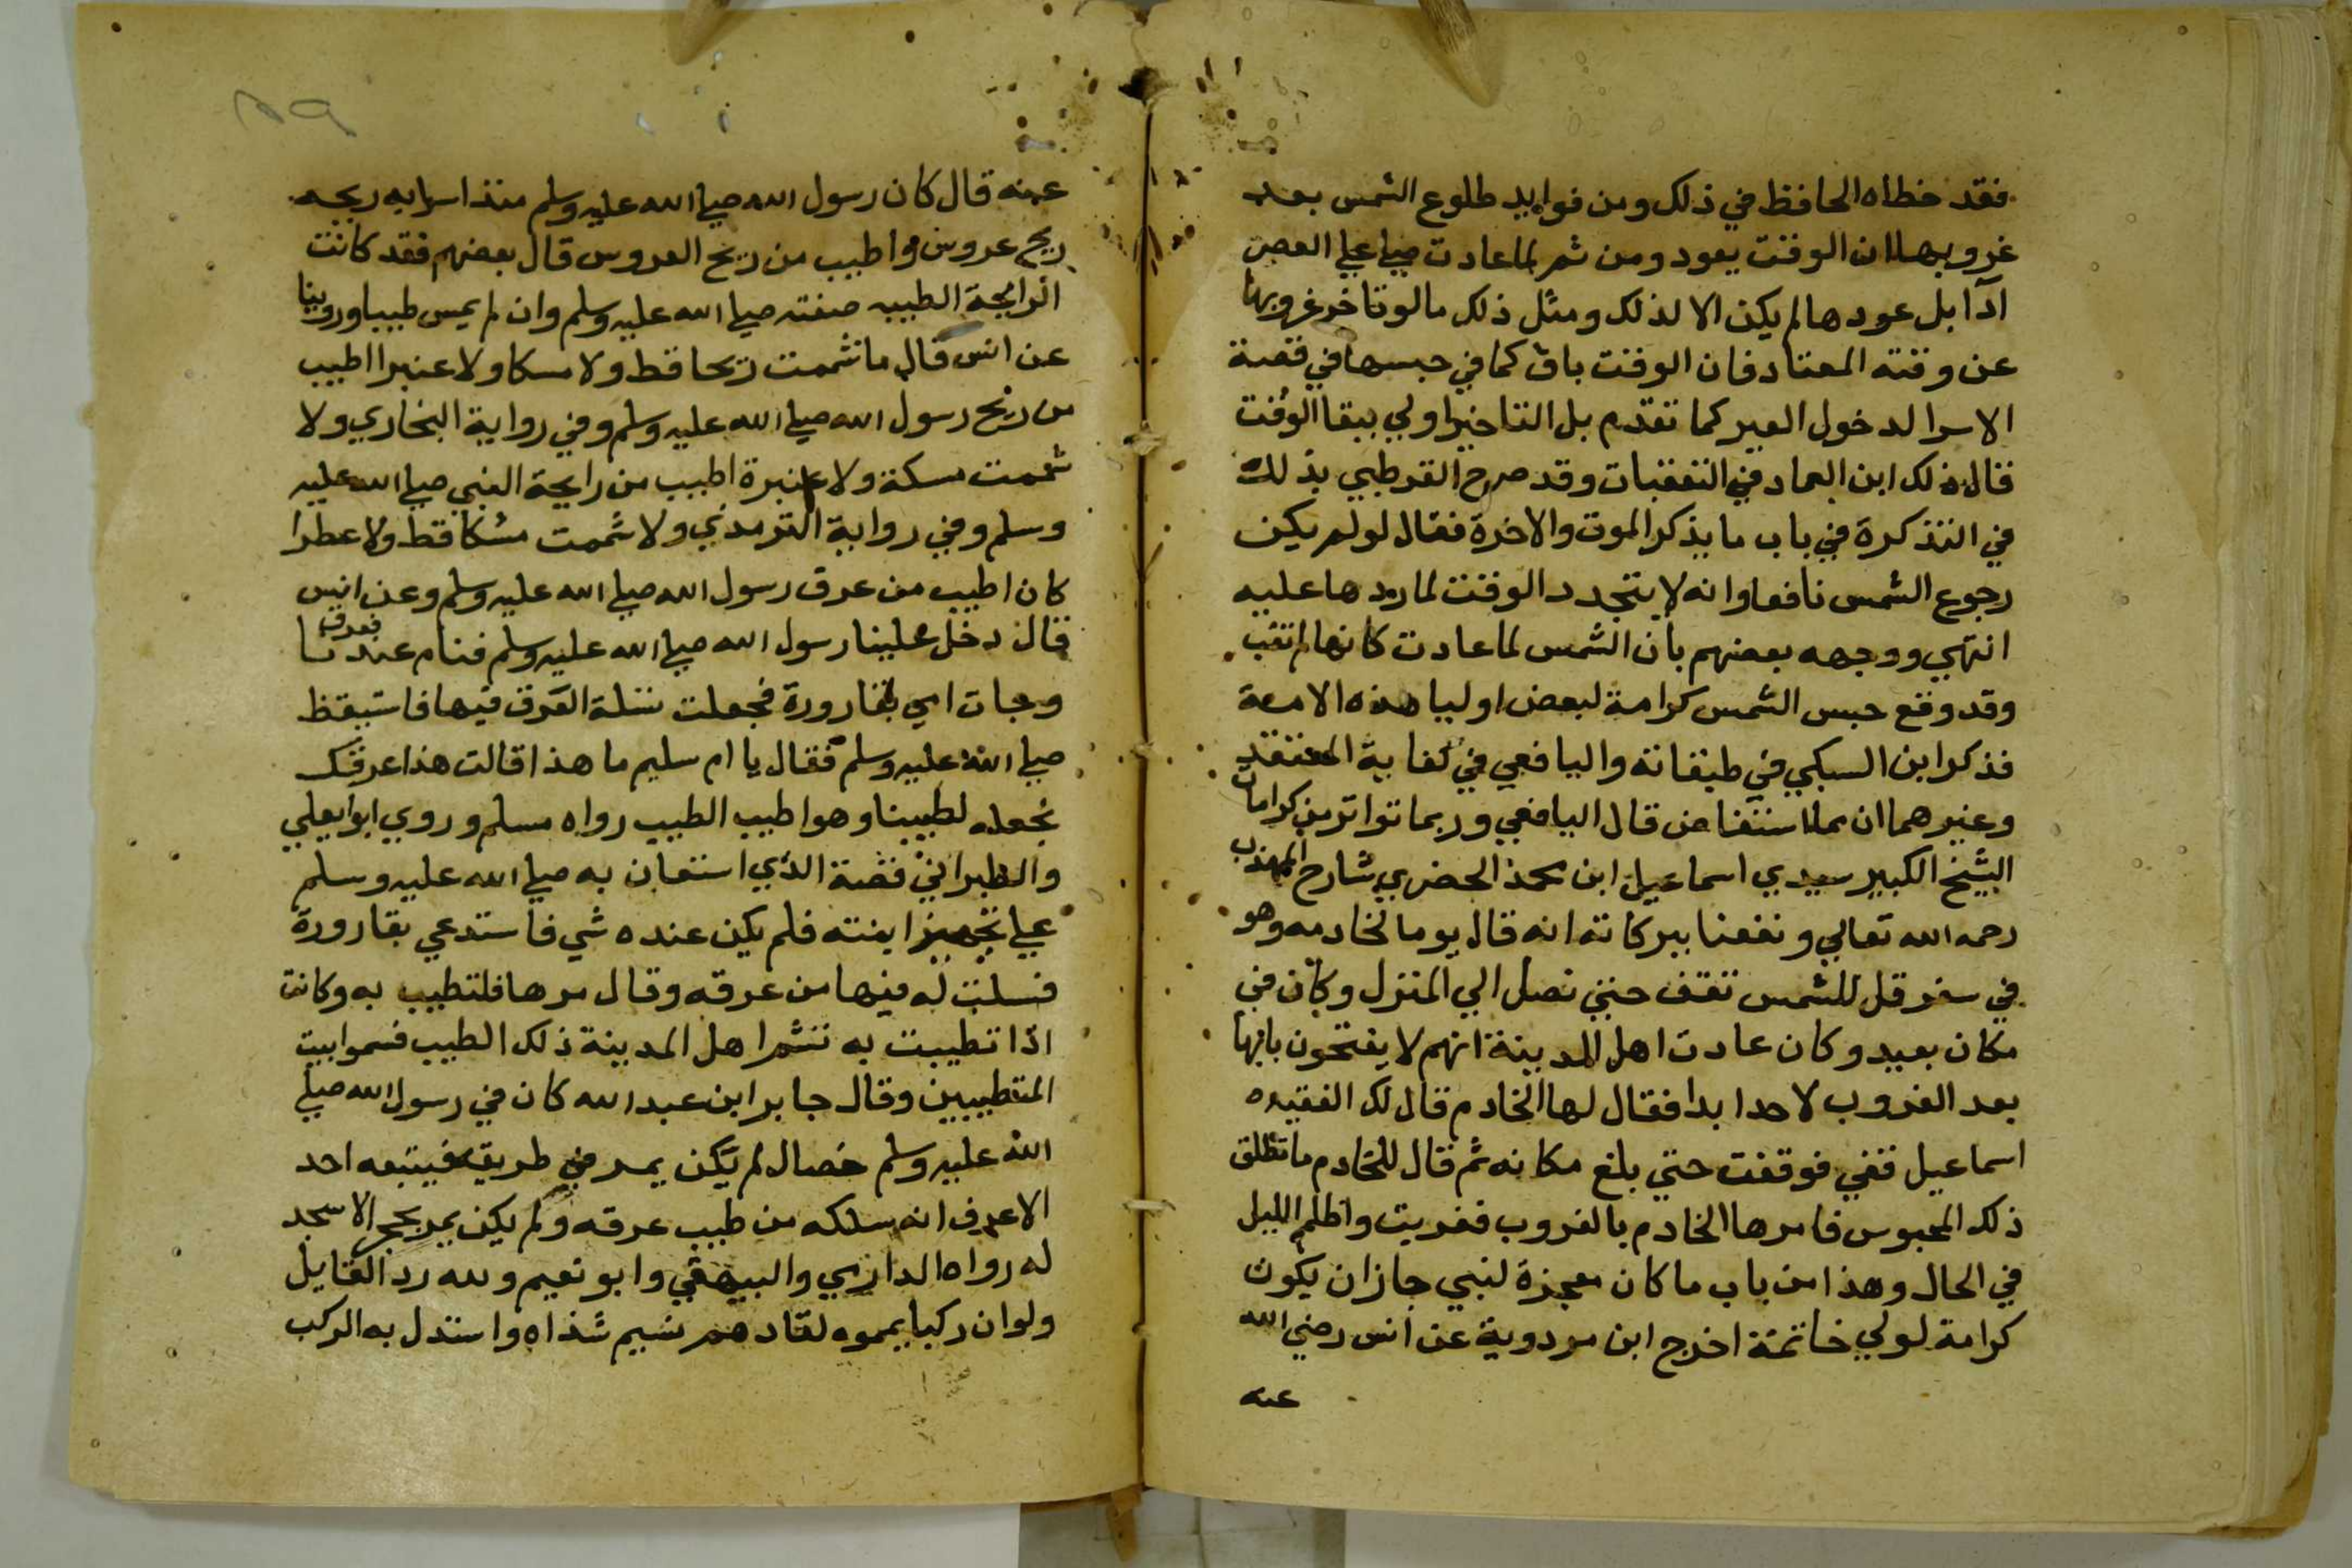 فقد خطاه الحافظ في ذلك ومن فوايد طلوع الشمس بعد
غروبها ان الوقت يعود ومن ثم لما عادت صلى علي العصر
اداً بل عودها لم يكن الا لذلك ومثل ذلك ما لو تاخر غروبها
عن وقته المعتاد فان الوقت باق كما في حبسها في قصة
الاسرا لدخول العير كما تقدم بل التاخير اولي ببقا الوقت
قال ذلك ابن العماد في التعقبات وقد صرح القرطبي بذلك
في التذكرة في باب ما يذكر الموت والاخرة فقال لو لم يكن
رجوع الشمس نافعا وانه لا يتجدد الوقت لما ردها عليه
انتهي ووجهه بعضهم بان الشمس لما عادت كانها لم تغب
وقد وقع حبس الشمس كرامة لبعض اوليا هذه الامة
فذكر ابن السبكي في طبقاته واليافعي في كفاية المعتقد
وغيرهما ان مما استفاض قال اليافعي وربما تواتر من كرامات
الشيخ الكبير سيدي اسماعيل ابن محمد الحضرمي شارح المهذب
رحمه الله تعالي ونفعنا ببركاته انه قال يوما لخادمه وهو
في سفر قل للشمس تقف حتي نصل الي المنزل وكان في
مكان بعيد وكان عادت اهل المدينة انهم لا يفتحون بابها
بعد الغروب لاحد ابدا فقال لها الخادم قال لك الفقيه
اسماعيل قفي فوقفت حتي بلغ مكانه ثم قال للخادم ما تطلق
ذلك المحبوس فامرها الخادم بالغروب فغربت واظلم الليل
في الحال وهذا من باب ما كان معجزة لنبي جاز ان يكون
كرامة لولي خاتمة اخرج ابن مردوية عن انس رضي الله
عنه
٨٩
عنه قال كان رسول الله صلي الله عليه وسلم منذ اسرا به ريحه
ريح عروس واطيب من ريح العروس قال بعضهم فقد كانت
الرايحة الطيبه صفته صلي الله عليه وسلم وان لم يمس طيبا وروينا
عن انس قال ما شممت ريحا قط ولا مسكا ولا عنبرا اطيب
من ريح رسول الله صلي الله عليه وسلم وفي رواية البخاري ولا
شممت مسكة ولا عنبرة اطيب من رايحة النبي صلي الله عليه
وسلم وفي رواية الترمذي ولا شممت مسكا قط ولا عطرا
كان اطيب من عرق رسول الله صلي الله عليه وسلم وعن انس
قال دخل علينا رسول الله صلي الله عليه وسلم فنام عندنا فعرق
وجات امي بقارورة فجعلت تسلت العرق فيها فاستيقظ
صلي الله عليه وسلم فقال يا ام سليم ما هذا قالت هذا عرقك
نجعله لطيبنا وهو اطيب الطيب رواه مسلم وروي ابو يعلي
والطبراني قصة الذي استعان به صلي الله عليه وسلم
علي تجهيز ابنته فلم يكن عنده شي فاستدعي بقارورة
فسلت له فيها من عرقه وقال مرها فلتطيب به وكانت
اذا تطيبت به تشم اهل المدينة ذلك الطيب فسموا بيت
المتطيبين وقال جابر ابن عبد الله كان في رسول الله صلي
الله عليه وسلم خصال لم يكن يمر في طريق فيتبعه احد
الا عرف انه سلكه من طيب عرقه ولم يكن يمر بحجر الا سجد
له رواه الدارمي والبيهقي وابو نعيم ولله در القايل
ولو ان ركبا يمموه لقادهم نسيم شذاه واستدل به الركب